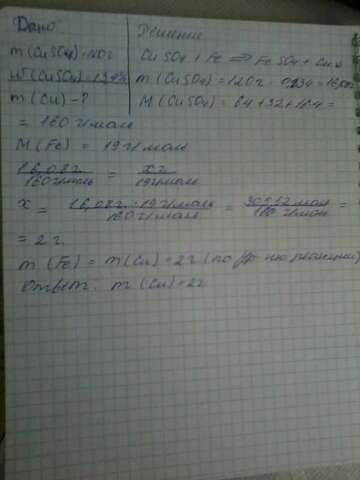 Дано
Решение
m(CuSO4)=120г
CuSO4 + Fe => FeSO4 + Cu↓
w(CuSO4)=13,4%
m(CuSO4)=120г · 0,134=16,08г
m(Cu)-?
M(CuSO4)= 64+32+16·4=
= 160 г/моль
M(Fe) = 19 г/моль
16,08г / 160г/моль = xг / 19г/моль
x = 16,08г · 19г/моль / 160г/моль = 305,52 моль / 160 г/моль =
= 2 г.
m (Fe) = m(Cu) = 2г (по реакции)
Ответ: m (Cu)=2г